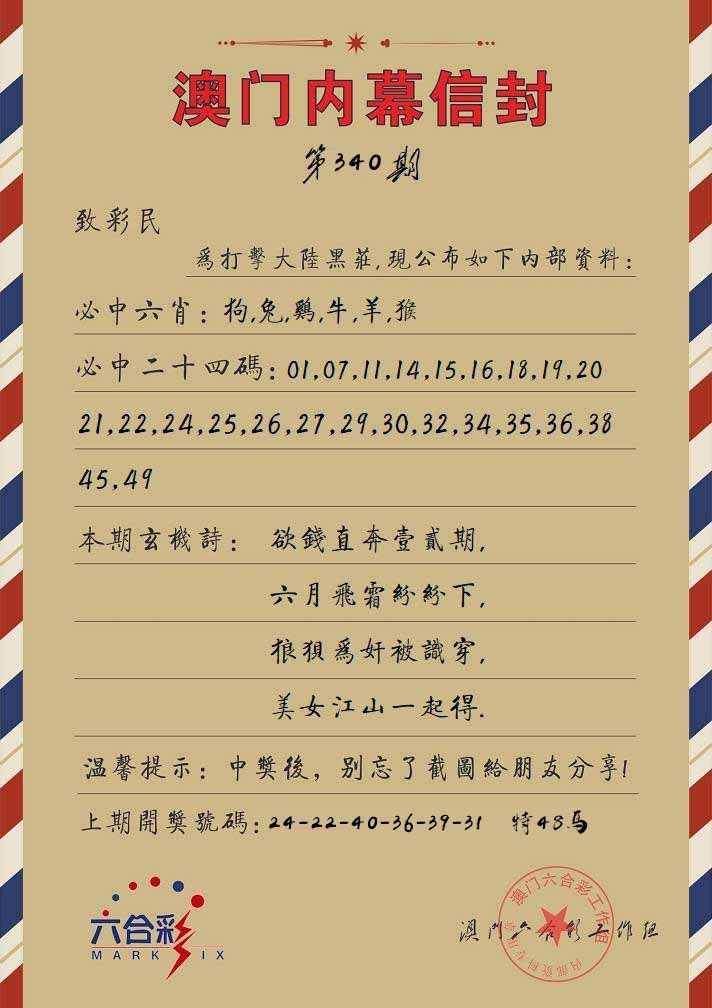 澳门内幕信封
第340期
致彩民
為打擊大陸黑莊,現公布如下内部資料:
必中六肖:狗,兔,鷄,牛,羊,猴
必中二十四碼:01,07,11,14,15,16,18,19,20
21,22,24,25,26,27,29,30,32,34,35,36,38
45,49
本期玄機詩: 欲錢直奔壹貳期,
六月飛霜紛紛下,
狼狽為奸被識穿,
美女江山一起得.
温馨提示:中獎後,别忘了截圖給朋友分享!
上期開獎號碼:24-22-40-36-39-31 特48馬
六合彩
MARK SIX
澳门六合彩工作组
澳门六合彩工作组
内部资料专用章